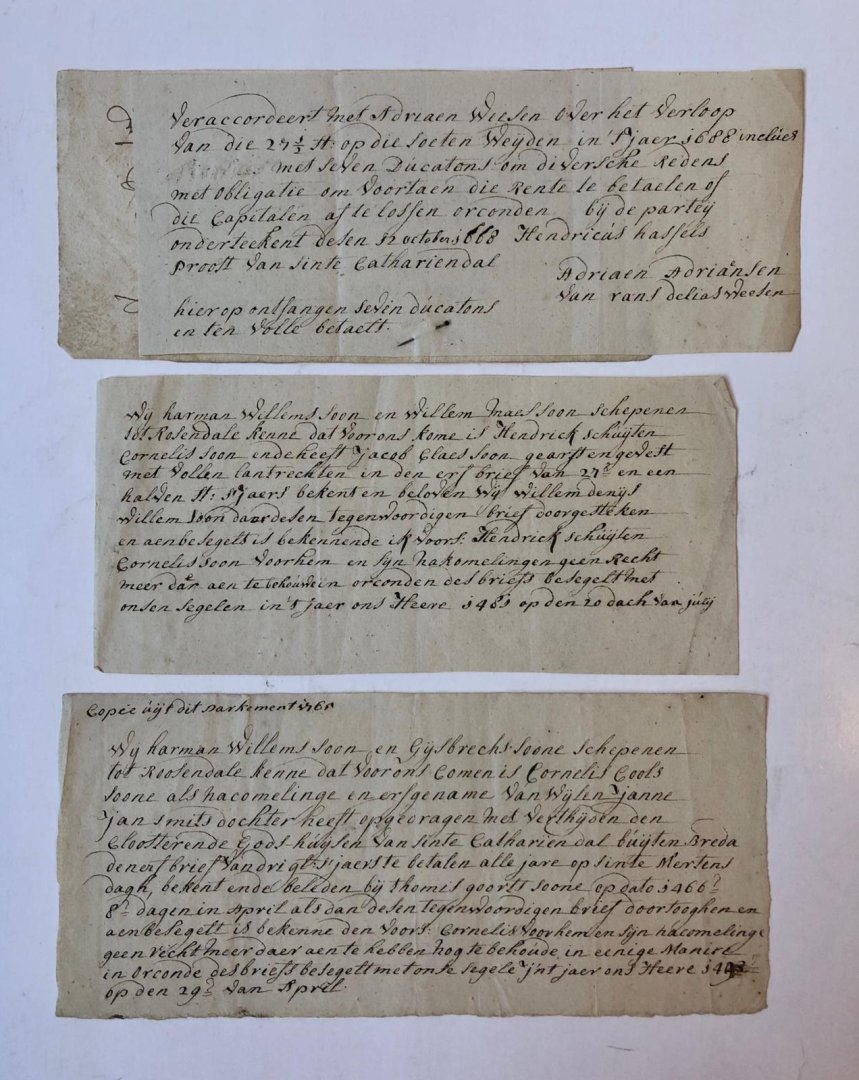 Veraccordeert met Adriaen Weesen over het verloop
van die 27 1/2 st: op die soeten Weijden in 't jaer 1688 inclúes
met seven Ducatons om diversche Redens
met obligatie om voortaen die Rente te betaelen of
die Capitalen af te lossen orconden bij de partey
onderteekent desen 12 october 1688 Hendricús hassels
proost van sinte Cathariendal
Adriaen Adriaensen
van
hier op ontfangen seven dúcatons
en ten volle betaelt.
Wy harman Willems soon en Willem maes soon schepenen
tot Rosendale kenne dat voor ons kome is Hendrick schúyten
Cornelis soon ende heeft Jacob Claes soon gevest
met vollen in den erf brief van 27 en een
halven st: sjaers bekent en beloven Wij Willem denijs
Willem soon daer desen tegenwoordigen brief doorgesteken
en aen besegelt is bekennende ik voors: Hendrick schúyten
Cornelis soon voor hem en syn nakomelingen geen Recht
meer daer aen te behouwe in orconden des briefs besegelt met
onsen segelen in 't jaer ons Heere 1481 op den 20 dach van júlij
Copie úijt dit parkement
Wy harman Willems soon en Gysbrechs soone schepenen
tot Roosendale kenne dat voor ons Comen is Cornelis Cools
soone als nacomelinge en erfgename van Wylen Janne
Jan smits dochter heeft opgedragen met verthyden den
Cloosterende Gods húysen van sinte Cathariendal búyten Breda
den erf brief van sjaers te betalen alle jare op sinte Mertens
dagh, bekent ende beleden bij thomis goorts soone op dato 1466
8 dagen in April als dan desen tegenwoordigen brief doortooghen en
aen besegelt is bekenne den voors: Cornelis voor hem en syn nacomelinge
geen recht meer daer aen te hebben nog te behoúde in eenige Maniere
in orconde des briefs besegelt met onse segele int jaer ons Heere
op den 29 van April